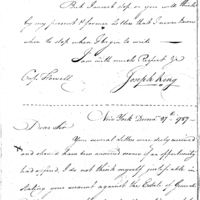 But I must stop or you will think
by my present performance that I never know
when to stop when I begin to write
I am with much Respect &c
Capt. Farrell Joseph King
New York December 27th 1787
Dear Sir
Your several letters were duly received
and should have been answered sooner if an opportunity
had offered, I do not think myself justifiable in
stating your account against the Estate of General